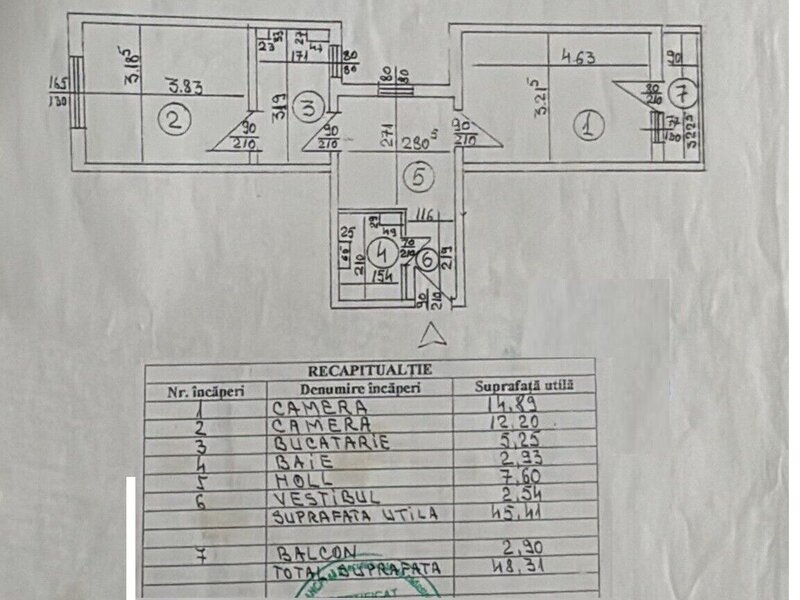 23 33 27 47
171
80
80
80
80
4.63
90
165
130
3.18⁵
3.83
319
3.21⁵
80
210
7
2
3
1
90
210
90
210
271
280⁵
90
210
77
130
3.225
5
116
29
49
25
60
210
4
70
210
6
219
154
90
210
RECAPITUALȚIE
Nr. încăperi Denumire încăperi Suprafață utilă
1 CAMERA 14,89
2 CAMERA 12,20
3 BUCATARIE 5,25
4 BAIE 2,93
5 HOLL 7,60
6 VESTIBUL 2,54
SUPRAFATA UTILA 45,41
7 BALCON 2,90
TOTAL SUPRAFATA 48,31
CERTIFICAT